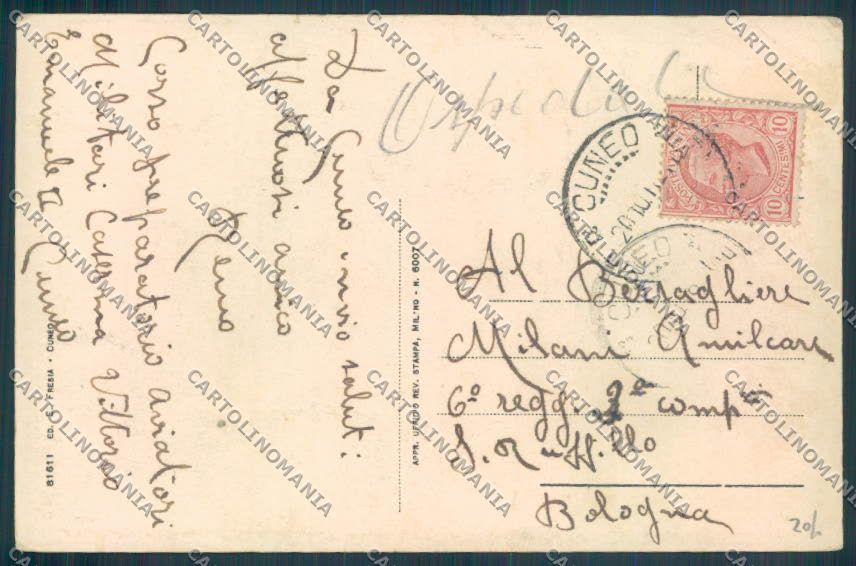 Da Cuneo invio saluti
affettuosi amico
Remo
Corso preparatorio aviatori
Militari Caserma Vittorio
Emanuele II Cuneo
81611 ED. C. FRESIA - CUNEO
APPR. UFFICIO REV. STAMPA, MILANO - N. 6007
Ospedale
CUNEO
10 CENTESIMI 10
Al Bersagliere
Milani Amilcare
6º regg. 2ª compª
S. Ruffillo
Bologna
20/.
CARTOLINOMANIA